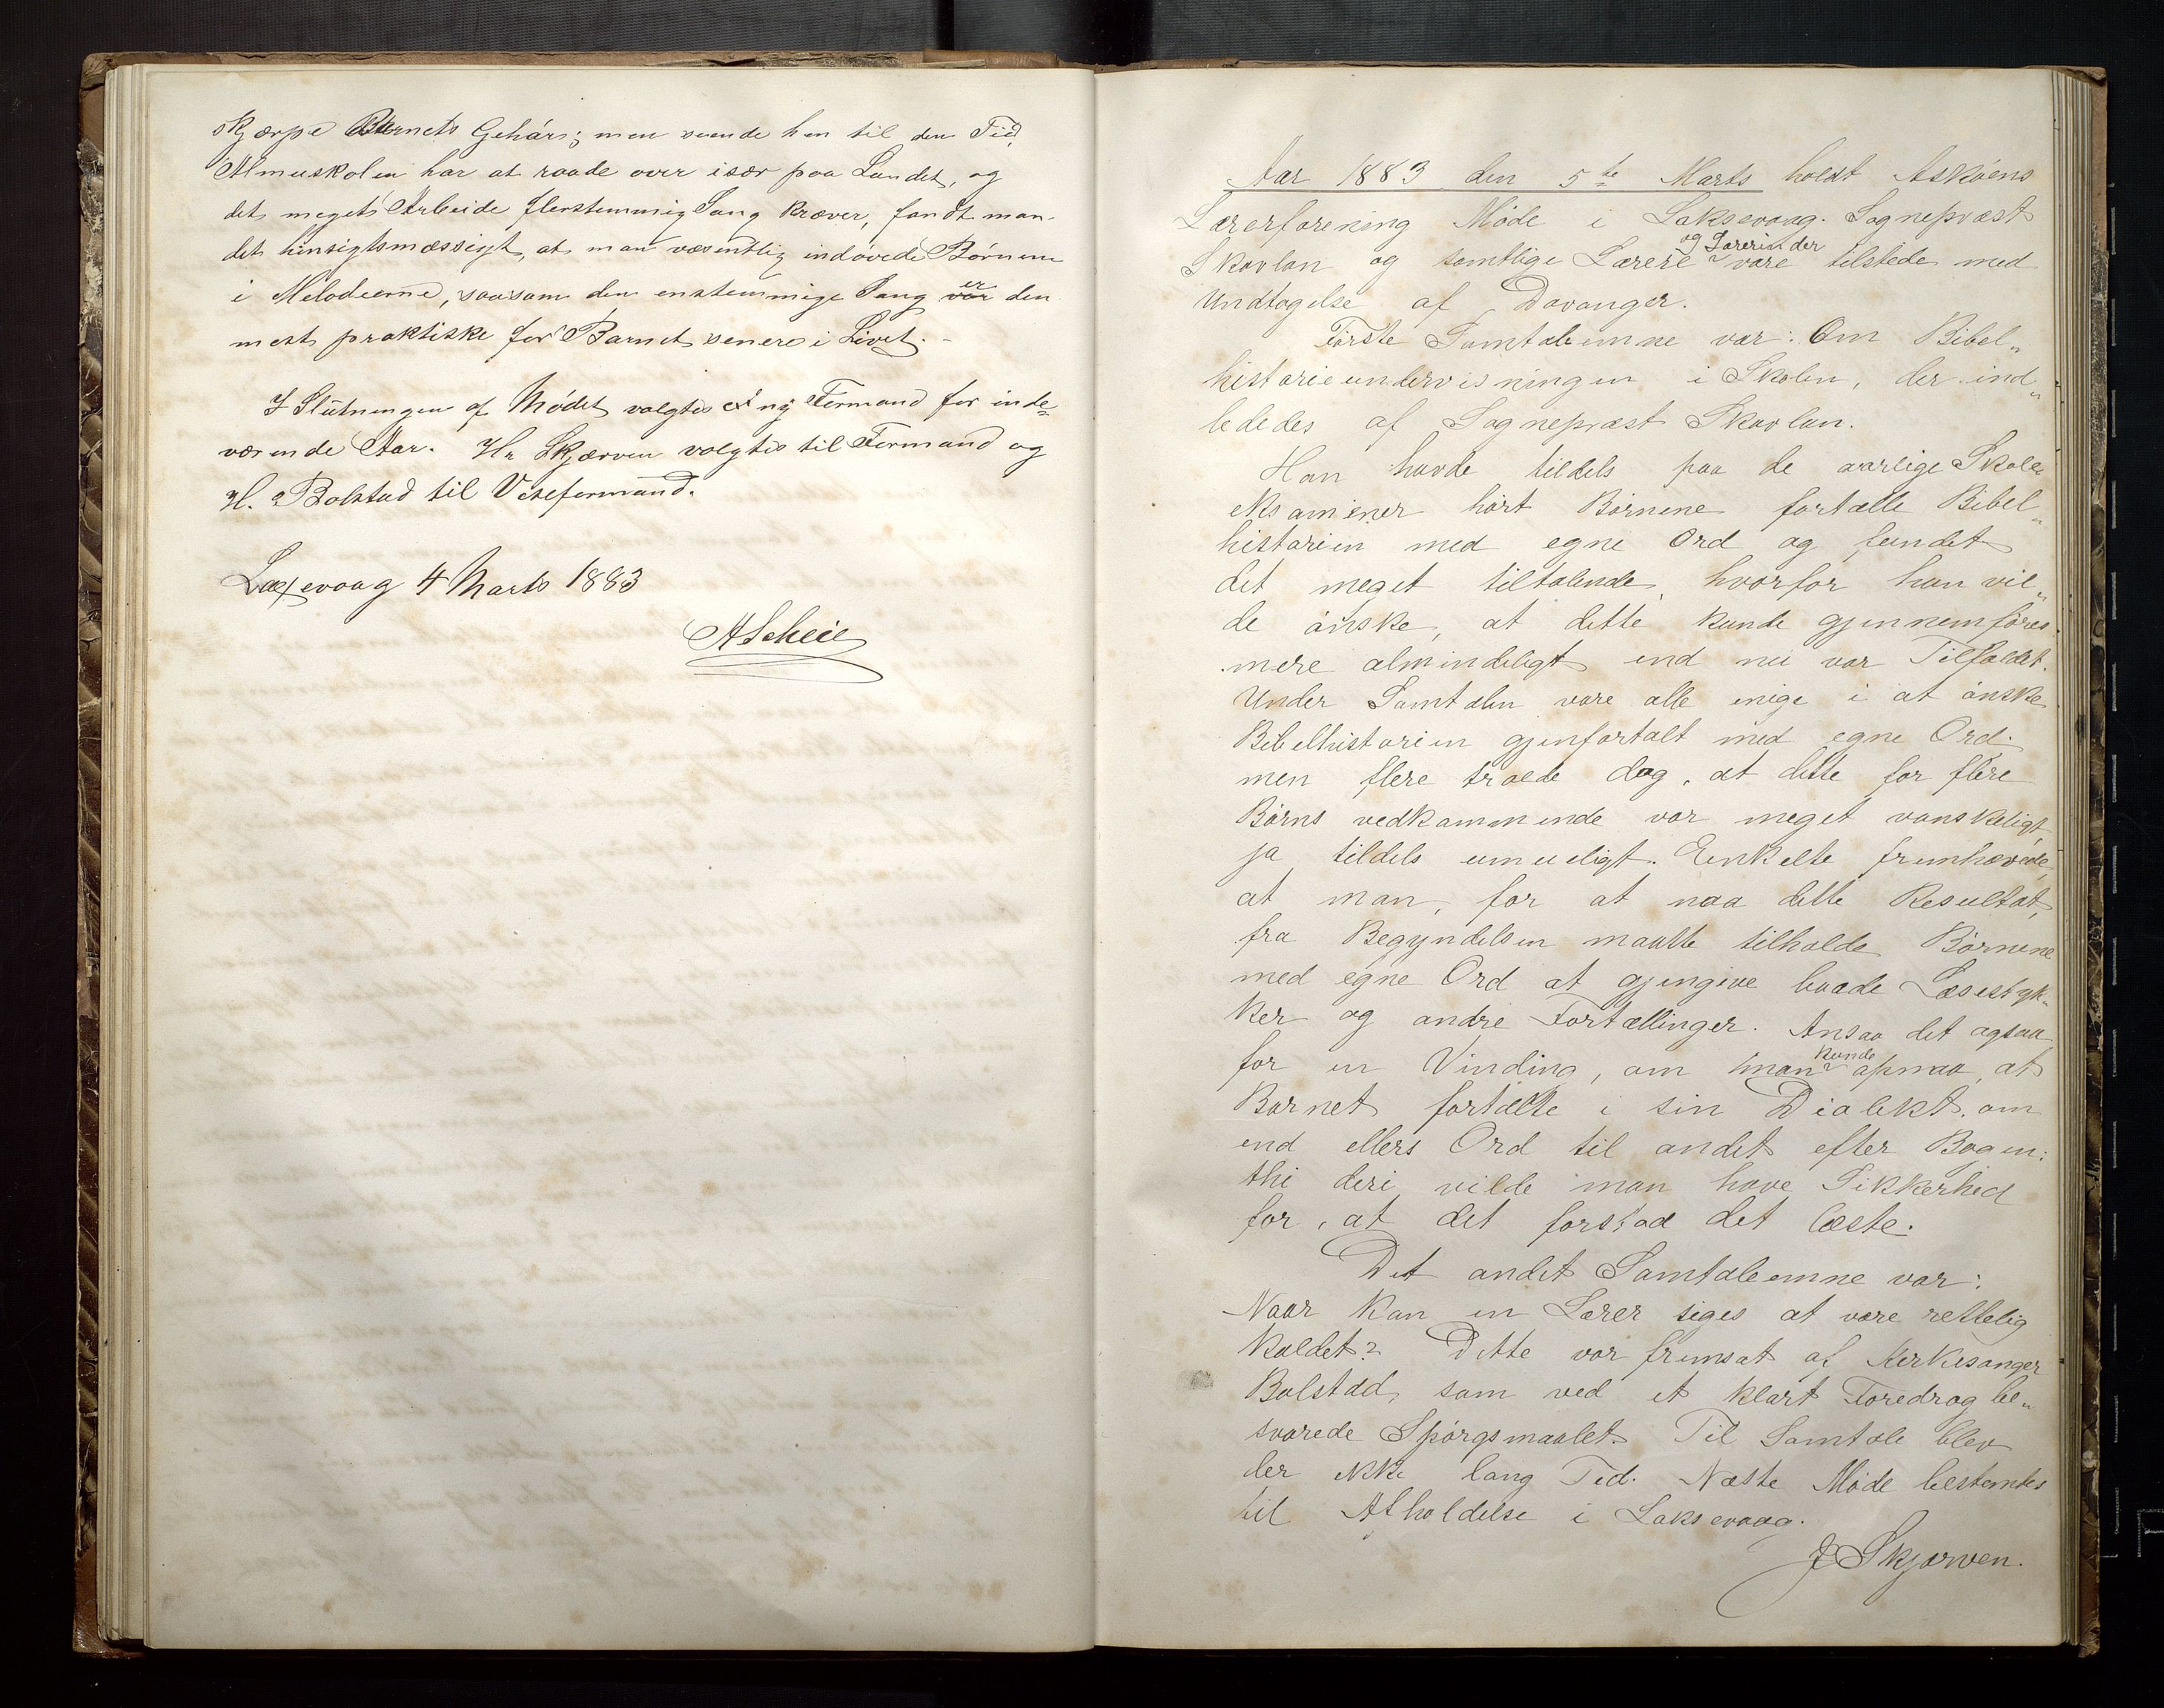 skjærpe Barnets Gehør; men seende hen til den Tid,
Almueskolen har at raade over især paa Landet, og
det meget Arbeide flerstemmig Sang kræver, fandt man
det hensigtsmæssigt, at man væsentlig indøvede Børnene
i Melodierne, saasom den enstemmige Sang er den
mest praktiske for Barnet senere i Livet. -
I Slutningen af Mødet valgtes ny Formand for inde-
værende Aar. Hr Skjærven valgtes til Formand og
H. Bolstad til Viseformand.
Laxevaag 4 Marts 1883
A Scheie
Aar 1883 den 5te Marts holdt Askøens
Lærerforening Møde i Laksevaag. Sognepræst
Skavlan og samtlige Lærere og Lærerinder vare tilstede med
Undtagelse af Davanger.
Første Samtaleemne var: Om Bibel„
historieundervisningen i Skolen, der ind„
lededes af Sognepræst Skavlan.
Han havde tildels paa de aarlige Skole„
eksamener hørt Børnene fortælle Bibel„
historien med egne Ord og fundet
det meget tiltalende, hvorfor han vil„
de ønske, at dette kunde gjennemføres
mere almindeligt end nu var Tilfældet.
Under Samtalen vare alle enige i at ønske
Bibelhistorien gjenfortalt med egne Ord;
men flere troede dog, at dette for flere
Børns vedkommende var meget vanskeligt,
ja tildels umueligt. Enkelte fremhævede,
at man, for at naa dette Resultat,
fra Begyndelsen maatte tilholde Børnene
med egne Ord at gjengive baade Læsestyk„
ker og andre Fortællinger. Ansaa det ogsaa
for en Vinding, om man kunde opnaa, at
Barnet fortalte i sin Dialekt, om
end ellers Ord til andet efter Bogen;
thi deri vilde man have Sikkerhed
for, at det forstod det læste.
Det andet Samtaleemne var:
Naar kan en Lærer siges at være rettelig
kaldet? Dette var fremsat af Kirkesanger
Bolstad, som ved et klart Foredrag be„
svarede Spørgsmaalet. Til Samtale blev
der ikke lang Tid. Næste Møde bestemtes
til Afholdelse i Laksevaag.
J Skjærven.